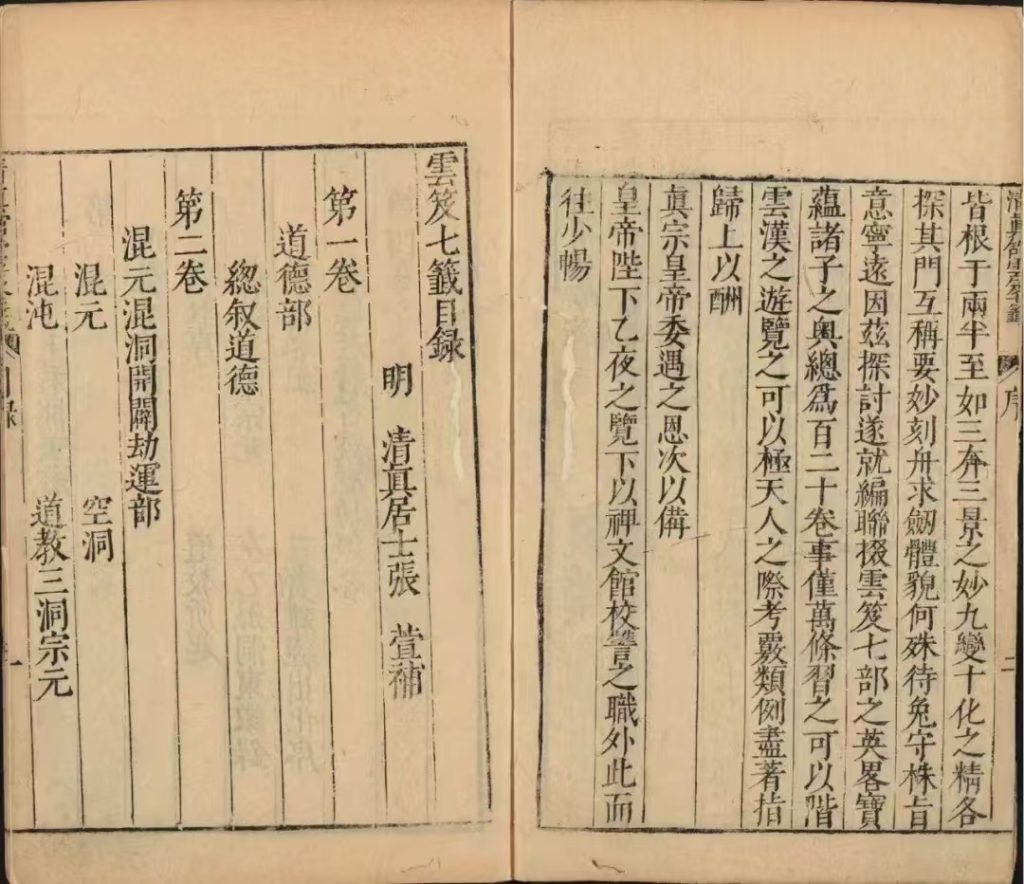 皆根于兩半至如三奔三景之妙九變十化之精各
探其門互稱要妙刻舟求劒體貌何殊待兔守株旨
意寧遠因茲探討遂就編聯掇雲笈七部之英畧寶
蘊諸子之奥總爲百二十卷事僅萬條習之可以階
雲漢之遊覽之可以極天人之際考覈類例盡著指
歸上以酬
眞宗皇帝委遇之恩次以備
皇帝陛下乙夜之覽下以裨文館校讐之職外此而
徃少暢
序
二
雲笈七籤目録
明 清眞居士張 萱補
第一卷
道德部
總叙道德
第二卷
混元混洞開闢劫運部
混元 空洞
混沌 道教三洞宗元
目録
一